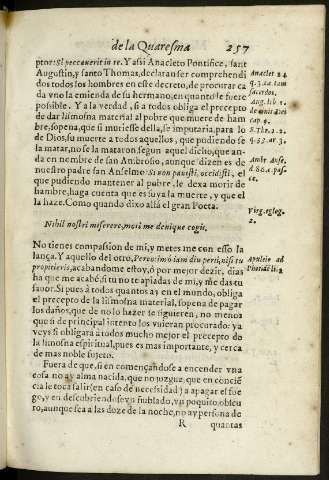 de la Quaresma 257
ptor: Si peccauerit in te. Y assi Anacleto Pontifice, sant
Augustin, y santo Thomas, declaran ser comprehendi
dos todos los hombres en este decreto, de procurar ca
da vno la emienda de su hermano, en quanto le fuere
possible. Y a la verdad, si a todos obliga el precepto
de dar limosna material al pobre que muere de ham
bre, sopena, que si muriesse della, se imputaria, para lo
de Dios, su muerte a todos aquellos, que pudiendo se
la matar, no se la mataron segun aquel dicho, que an-
da en nombre de san Ambrosio, aunque dizen es de
nuestro padre san Anselmo: Si non pauisti, occidisti, el
que pudiendo mantener al pobre, le dexa morir de
hambre, haga cuenta que es suya la muerte, y que el
la haze. Como quando dixo allà el gran Poeta.
Nihil nostri miserere, mori me denique cogis.
No tienes compasion de mi, y metes me con esso la
lança. Y aquello del otro, Pereo: imò iam diu perij, nisi tu
propitieris, acabandome estoy, ò por mejor dezir, dias
ha que me acabè, si tu no te apiadas de mi, y me das tu
fauor. Si pues à todos quantos ay en el mundo, obliga
el precepto de la limosna material, sopena de pagar
los daños, que de no lo hazer se siguieren, no menos
que si de principal intento los vuieran procurado: ya
veys si obligarà à todos mucho mejor el precepto de
la limosna espiritual, pues es mas importante, y cerca
de mas noble sujeto.
Fuera de que, si en començandose a encender vna
cosa no ay alma nacida, que no juzgue, que en concie
cia le toca salir (en caso de necessidad) a apagar el fue
go, y en descubriendose vn ñublado, vn poquito obscu
ro, aunque sea a las doze de la noche, no ay persona de
R quantas
Anacler 24
q. 3. ca. tam
sacerdos.
Aug. lib. 1.
de ciuit. Dei
cap. 9.
S. Tho. 2. 2.
q. 33. ar. 3.
Ambr. Anse.
d. 86. c. pas-
ce.
Virg. eglog.
2.
Apuleio ad
Photidē li. 2